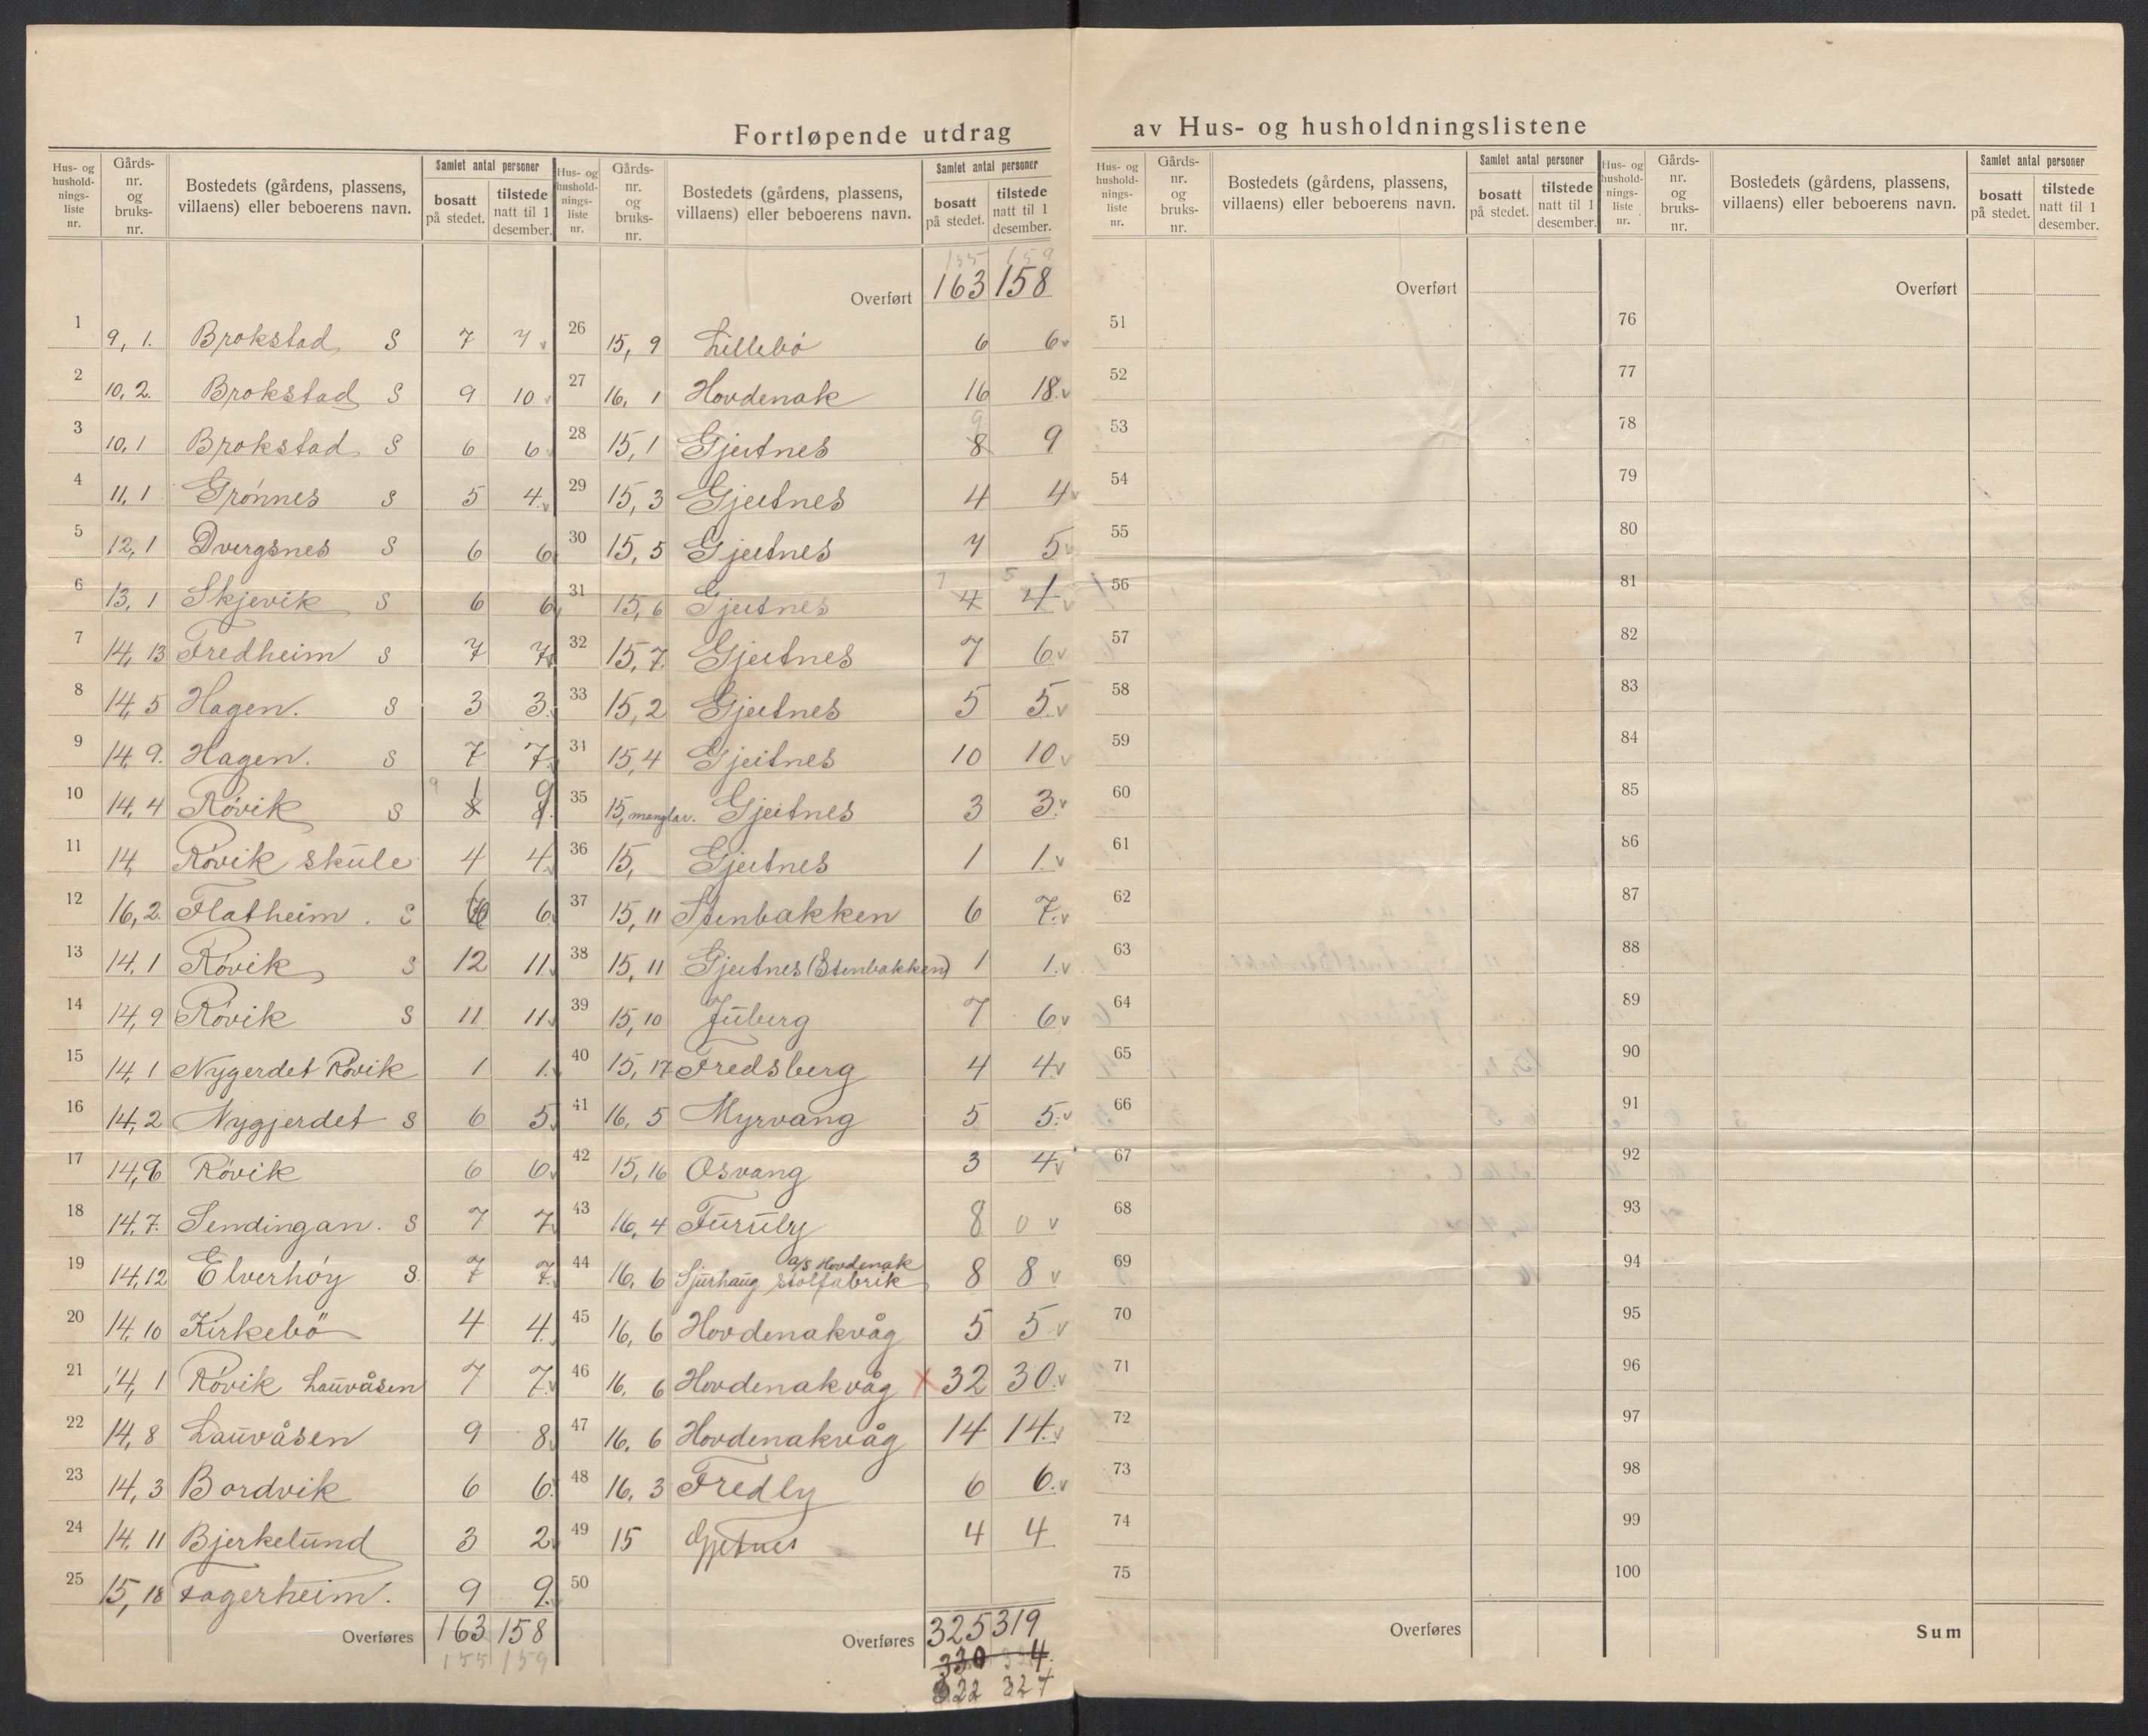 Fortløpende utdrag av Hus- og husholdningslistene
Hus- og hushold-nings-liste nr. | Gårds-nr. og bruks-nr. | Bostedets (gårdens, plassens, villaens) eller beboerens navn. | Samlet antal personer | bosatt på stedet. | tilstede natt til 1 desember.
1 9, 1. Brokstad S 7 7 v
2 10, 2. Brokstad S 9 10 v
3 10, 1 Brokstad S 6 6 v
4 11, 1 Grønnes S 5 4. v
5 12, 1 Dvergsnes S 6 6
6 13, 1 Skjevik S 6 6 v
7 14, 13 Fredheim S 7 7 v
8 14, 5 Hagen. S 3 3. v
9 14, 9. Hagen. S 7 7 v
10 14, 4 Røvik S 9 8 1 9 8.
11 14, Røvik skule 4 4 v
12 16, 2. Flatheim. S 6 6 v
13 14, 1 Røvik S 12 11 v
14 14, 9 Røvik S 11 11 v
15 14, 1 Nygerdet Røvik 1 1. v
16 14, 2 Nygjerdet S 6 5 v
17 14, 6 Røvik 6 6 v
18 14, 7. Sendingan. S 7 7 v
19 14, 12 Elverhøy S. 7 7 v
20 14, 10 Kirkebö 4 4.
21 14, 1 Røvik Lauvåsen 7 7 v
22 14, 8 Lauvåsen 9 8 v
23 14, 3 Bordvik 6 6.
24 14, 11 Bjerkelund 3 2 v
25 15, 18 Fagerheim. 9 9.
Overføres 163 158
155 159
Hus- og hushold-nings-liste nr. | Gårds-nr. og bruks-nr. | Bostedets (gårdens, plassens, villaens) eller beboerens navn. | Samlet antal personer | bosatt på stedet. | tilstede natt til 1 desember.
155 159
Overført 163 158
26 15, 9 Lillebö 6 6 v
27 16, 1 Hovdenak 16 18. v
28 15, 1 Gjeitnes 9 8 9
29 15, 3 Gjeitnes 4 4 v
30 15, 5 Gjeitnes 7 5 v
31 15, 6 Gjeitnes 7 4 5 4 v
32 15, 7. Gjeitnes 7 6. v
33 15, 2 Gjeitnes 5 5. v
34 15, 4 Gjeitnes 10 10 v
35 15, manglar. Gjeitnes 3 3. v
36 15, Gjeitnes 1 1. v
37 15, 11 Stenbakken 6 7. v
38 15, 11 Gjeitnes (Stenbakken) 1 1. v
39 15, 10 Juberg 7 6 v
40 15, 17 Fredsberg 4 4 v
41 16, 5 Myrvang 5 5. v
42 15, 16 Osvang 3 4 v
43 16, 4 Furuly 8 0 v
44 16, 6 Sjurhaug a/s Hovdenak stolfabrik 8 8 v
45 16, 6 Hovdenakvåg 5 5 v
46 16, 6 Hovdenakvåg x 32 30. v
47 16, 6 Hovdenakvåg 14 14. v
48 16, 3 Fredly 6 6. v
49 15 Gjetnes 4 4
50
Overføres 325 319
322 327
Hus- og hushold-nings-liste nr. | Gårds-nr. og bruks-nr. | Bostedets (gårdens, plassens, villaens) eller beboerens navn. | Samlet antal personer | bosatt på stedet. | tilstede natt til 1 desember.
Overført
51
52
53
54
55
56
57
58
59
60
61
62
63
64
65
66
67
68
69
70
71
72
73
74
75
Overføres
Hus- og hushold-nings-liste nr. | Gårds-nr. og bruks-nr. | Bostedets (gårdens, plassens, villaens) eller beboerens navn. | Samlet antal personer | bosatt på stedet. | tilstede natt til 1 desember.
Overført
76
77
78
79
80
81
82
83
84
85
86
87
88
89
90
91
92
93
94
95
96
97
98
99
100
Sum